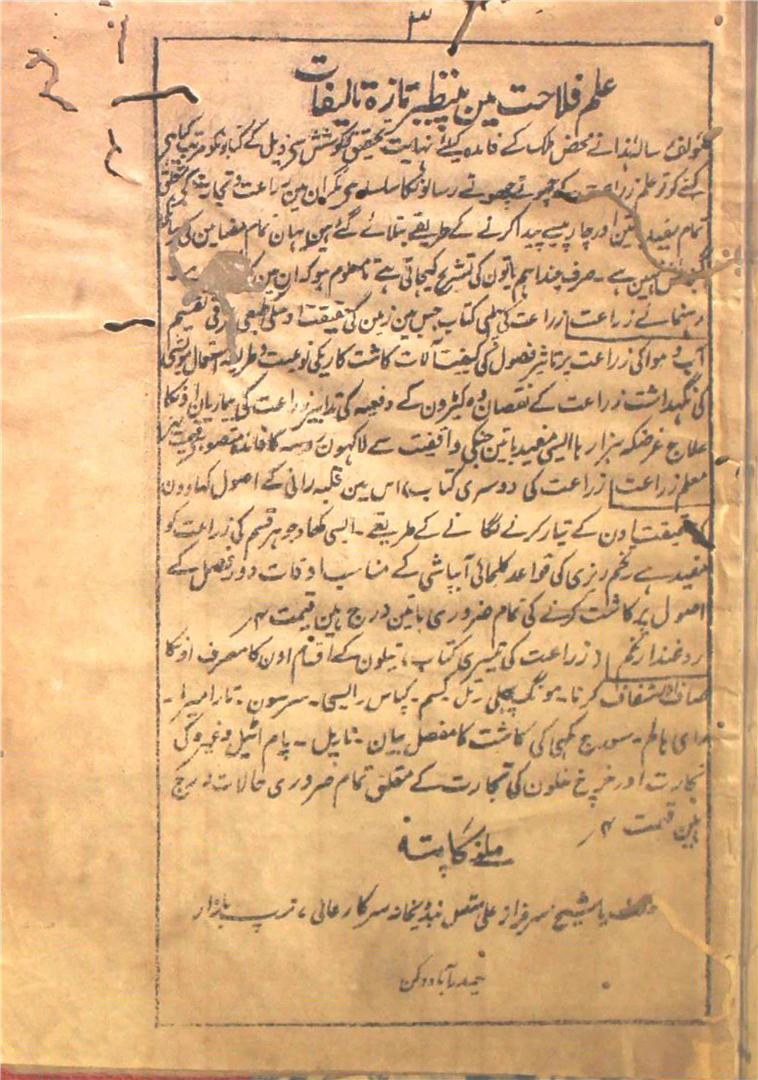 ۳
علم فلاحت مین بینظیر تازہ تالیفات
مؤلف رسالہ ہذا نے محض ملک کے فائدہ کیلئے نہایت تحقیق و کوشش سے ذیل کے کتابونکو مرتب کیا ہے
کہنے کو تو علم زراعت کے چھوٹے چھوٹے رسالونکا سلسلہ ہے مگر ان مین زراعت و تجارت کے متعلق
تمام مفید باتین اور چار پیسے پیدا کرنے کے طریقے بتلائے گئے ہین یہان تمام مضامین کی
گنجائش نہین ہے ۔ صرف چند اہم باتون کی تشریح کیجاتی ہے تا معلوم ہو کہ ان مین
رہنمائے زراعت زراعت کی پہلی کتاب جس مین زمین کی حقیقت اوسکی طبعی تقسیم
آب و ہوا کی زراعت پر تاثیر فصلون کی کیفیت آلات کاشت کاریکی نوعیت و طریقہ استعمال مویشی
کی نگہداشت زراعت کے نقصان دہ کیڑون کے دفعیہ کی تدابیر زراعت کی بیماریان اونکا
علاج غرضکہ ہزار ہا ایسی مفید باتین جنکی واقفیت سے لاکھون روپیہ کا فائدہ متصور ہے
معلم زراعت (زراعت کی دوسری کتاب) اس مین قلبہ رانی کے اصول کھادون
کی حقیقت اون کے تیار کرنے لگانے کے طریقے ۔ ایسی کھاد جو ہر قسم کی زراعت کو
مفید ہے تخم ریزی کی قواعد آبپاشی کے مناسب اوقات دور فصل کے
اصول پر کاشت کرنے کی تمام ضروری باتین درج ہین قیمت ۴؍
روغندار تخم (زراعت کی تیسری کتاب) تیلون کے اقسام اون کا مصرف اونکا
صاف و شفاف کرنا ۔ مونگ پھلی ۔ تل ۔ کسم ۔ کپاس ۔ السی ۔ سرسون ۔ تارامیرا ۔
رائی ۔ سورج مکھی کی کاشت کا مفصل بیان ۔ ناریل ۔ پام آئیل وغیرہ کی
تجارت اور نرخ غلون کی تجارت کے متعلق تمام ضروری حالات درج
ہین قیمت ۴؍
ملنے کا پتہ
شیخ سرفراز علی متصل سرکار عالی، ترپ بازار
حیدرآباد دکن